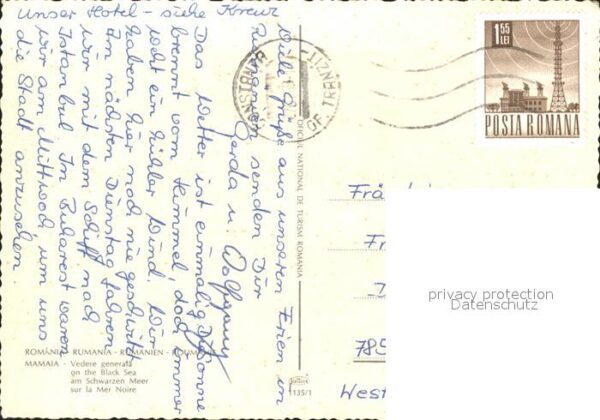 Unser Hotel - siehe Kreuz
Viele Grüße aus unseren Ferien in
Rumänien senden Dir
Gerda u. Wolfgang
Das Wetter ist einmalig. Sonne
brennt vom Himmel, doch immer
weht ein kühler Wind. Wir
haben hier noch nie geschwitzt
Am nächsten Dienstag fahren
wir mit dem Schiff nach
Istanbul. In Bukarest waren
wir am Mittwoch um uns
die Stadt anzusehen.
CONSTANȚA
OF. TR
1,55
LEI
POSTA ROMANA
OFICIUL NATIONAL DE TURISM ROMANIA
785
West
privacy protection
Datenschutz
ROMÂNIA - RUMANIA - RUMANIEN - ROUMANIE
MAMAIA - Vedere generală
on the Black Sea
am Schwarzen Meer
sur la Mer Noire
1135/1